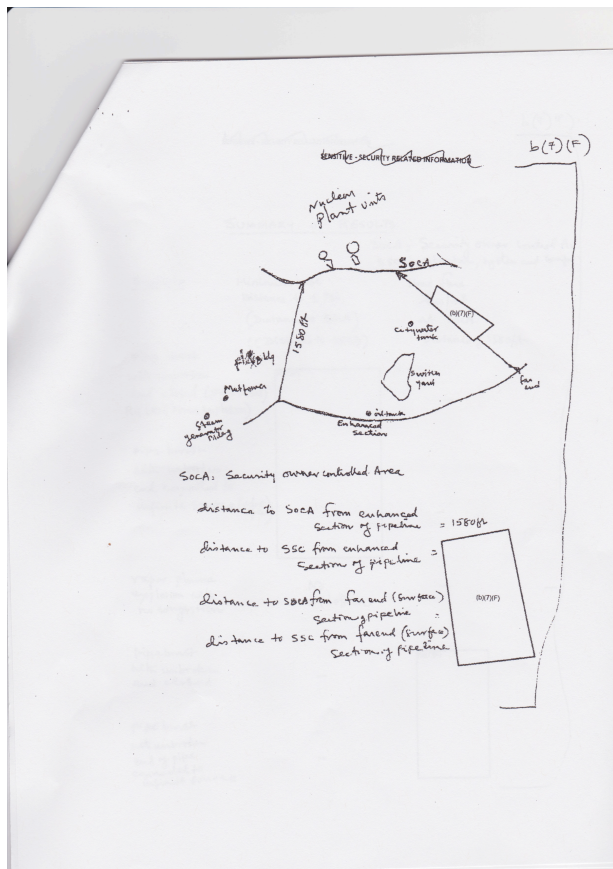 b(7)(F)
SENSITIVE - SECURITY RELATED INFORMATION
Nuclear
plant units
SOCA
(b)(7)(F)
1580 ft
City water
tank
switch
yard
far
end
Meteo
Steam
generator
oil tank
Enhanced
section
SOCA: Security owner controlled Area
distance to SOCA from enhanced
section of pipeline = 1580 ft
distance to SSC from enhanced =
section of pipeline
(b)(7)(F)
distance to SOCA from far end (surface)
section of pipeline =
distance to SSC from far end (surface)
section of pipeline